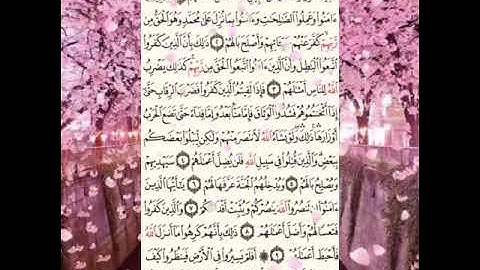 ءَامَنُوا۟ وَعَمِلُوا۟ ٱلصَّٰلِحَٰتِ وَءَامَنُوا۟ بِمَا نُزِّلَ عَلَىٰ مُحَمَّدٍ وَهُوَ ٱلْحَقُّ مِن
رَّبِّهِمْ كَفَّرَ عَنْهُمْ سَيِّـَٔاتِهِمْ وَأَصْلَحَ بَالَهُمْ ٢ ذَٰلِكَ بِأَنَّ ٱلَّذِينَ كَفَرُوا۟
ٱتَّبَعُوا۟ ٱلْبَٰطِلَ وَأَنَّ ٱلَّذِينَ ءَامَنُوا۟ ٱتَّبَعُوا۟ ٱلْحَقَّ مِن رَّبِّهِمْ كَذَٰلِكَ يَضْرِبُ
ٱللَّهُ لِلنَّاسِ أَمْثَٰلَهُمْ ٣ فَإِذَا لَقِيتُمُ ٱلَّذِينَ كَفَرُوا۟ فَضَرْبَ ٱلرِّقَابِ حَتَّىٰٓ
إِذَآ أَثْخَنتُمُوهُمْ فَشُدُّوا۟ ٱلْوَثَاقَ فَإِمَّا مَنًّۢا بَعْدُ وَإِمَّا فِدَآءً حَتَّىٰ تَضَعَ ٱلْحَرْبُ
أَوْزَارَهَا ذَٰلِكَ وَلَوْ يَشَآءُ ٱللَّهُ لَٱنتَصَرَ مِنْهُمْ وَلَٰكِن لِّيَبْلُوَا۟ بَعْضَكُم
بِبَعْضٍ وَٱلَّذِينَ قُتِلُوا۟ فِى سَبِيلِ ٱللَّهِ فَلَن يُضِلَّ أَعْمَٰلَهُمْ ٤ سَيَهْدِيهِمْ
وَيُصْلِحُ بَالَهُمْ ٥ وَيُدْخِلُهُمُ ٱلْجَنَّةَ عَرَّفَهَا لَهُمْ ٦ يَٰٓأَيُّهَا ٱلَّذِينَ
ءَامَنُوٓا۟ إِن تَنصُرُوا۟ ٱللَّهَ يَنصُرْكُمْ وَيُثَبِّتْ أَقْدَامَكُمْ ٧ وَٱلَّذِينَ كَفَرُوا۟
فَتَعْسًا لَّهُمْ وَأَضَلَّ أَعْمَٰلَهُمْ ٨ ذَٰلِكَ بِأَنَّهُمْ كَرِهُوا۟ مَآ أَنزَلَ ٱللَّهُ
فَأَحْبَطَ أَعْمَٰلَهُمْ ٩ أَفَلَمْ يَسِيرُوا۟ فِى ٱلْأَرْضِ فَيَنظُرُوا۟ كَيْفَ